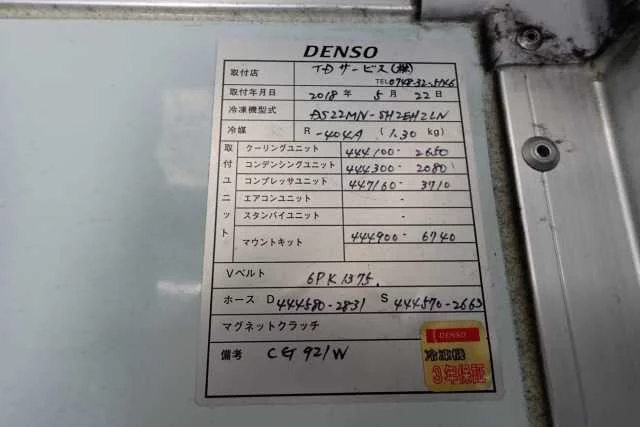 DENSO
取付店 TDサービス(株)
TEL 0748-32-5146
取付年月日 2018 年 5 月 22 日
冷凍機型式
冷媒 R -404A (1.30 kg)
取付ユニット
クーリングユニット 444100- 2650
コンデンシングユニット 444300- 2080
コンプレッサユニット 447160- 3710
エアコンユニット -
スタンバイユニット -
マウントキット 444900- 6740
Vベルト 6PK1375.
ホース D 444580-2831 S 444570-2663
マグネットクラッチ
備考 CG 921W
DENSO
冷凍機
3年保証